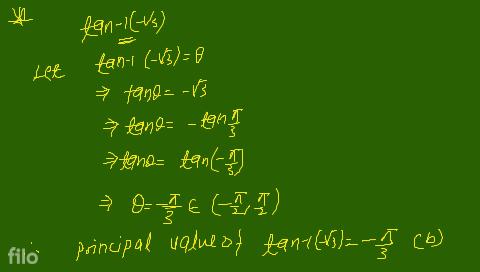 tan-1(-√3)
Let tan-1 (-√3) = θ
⇒ tanθ = -√3
⇒ tanθ = - tan π/3
⇒ tanθ = tan(-π/3)
⇒ θ = -π/3 ∈ (-π/2, π/2)
∴ principal value of tan-1(-√3) = -π/3 (b)
filo